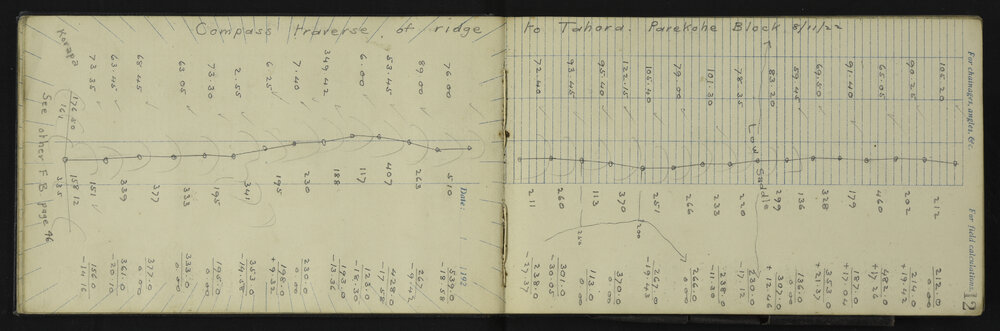 Compass traverse of ridge to Tahora. Parekohe Block 8/11/22
Korapa
See other F.B. page 46
Date: 192
For chainages, angles, &c.
For field calculations.
12
Low Saddle
73.35
63.45
65.45
63.05
73.30
2.55
6.25
7.40
349.42
6.00
53.45
89.00
76.00
72.40
93.45
95.40
122.15
105.40
79.00
101.30
78.35
83.20
59.45
69.50
91.40
65.05
90.25
105.20
176.50
158.12
151
339
377
333
195
341
195
230
188
117
407
263
510
211
260
113
370
251
266
233
220
299
136
328
179
460
202
212
200
156.0
-14.16
361.0
-20.10
377.0
0.00
333.0
0.00
195.0
0.00
353.0
-14.58
198.0
+9.32
230.0
0.00
193.0
-13.36
123.0
-18.30
428.0
-17.58
267
-9.42
539.0
-18.58
238.0
-27.37
301.0
-30.05
113.0
0.00
370.0
0.00
267.0
-19.43
266.0
0.00
238.0
-11.30
230.0
-17.12
307.0
+12.46
136.0
0.00
353.0
+21.27
187.0
+17.04
482.0
+17.26
214.0
+19.42
212.0
0.00